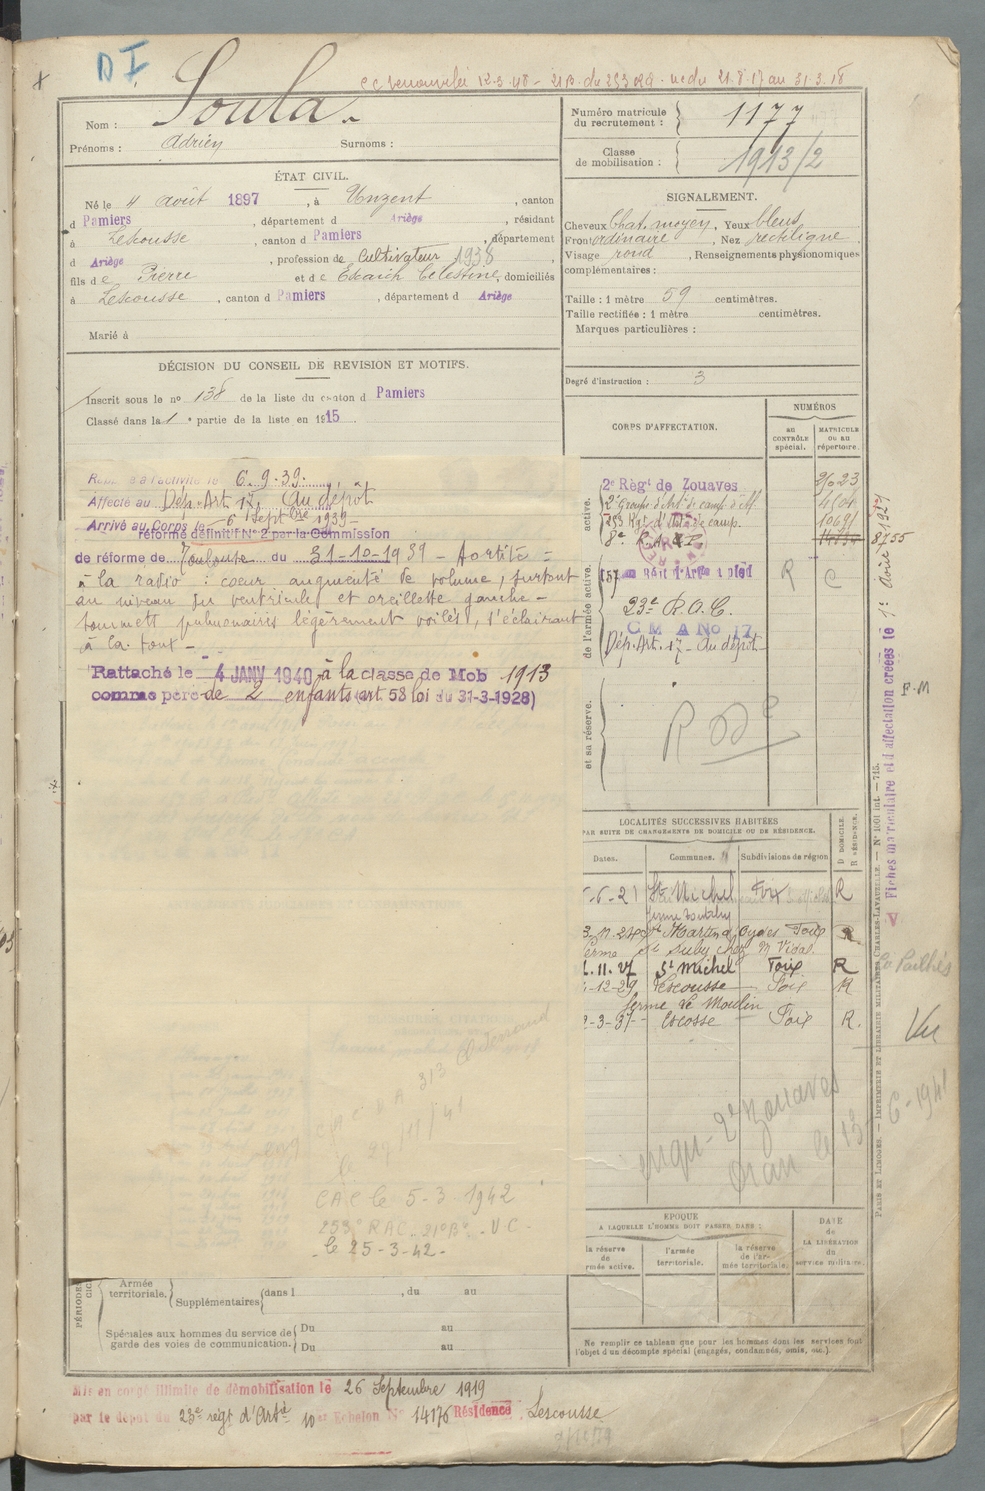 D I
Nom : Soula
Prénoms : Adrien Surnoms :
Numéro matricule
du recrutement : 1177
Classe
de mobilisation : 1913/2
ÉTAT CIVIL.
Né le 4 août 1897, à Unzent, canton
d Pamiers, département d Ariège, résidant
à Lescousse, canton d Pamiers, département
d Ariège, profession de Cultivateur 1938,
fils de Pierre et de Escaich Célestine, domiciliés
à Lescousse, canton d Pamiers, département d Ariège
Marié à
SIGNALEMENT.
Cheveux Chat. moyen, Yeux bleus
Front ordinaire, Nez rectiligne.
Visage rond, Renseignements physionomiques
complémentaires :
Taille : 1 mètre 59 centimètres.
Taille rectifiée : 1 mètre centimètres.
Marques particulières :
Degré d'instruction : 3
DÉCISION DU CONSEIL DE REVISION ET MOTIFS.
Inscrit sous le no 138 de la liste du canton d Pamiers
Classé dans la 1e partie de la liste en 1915
CORPS D'AFFECTATION.
NUMÉROS
au
CONTRÔLE
spécial.
MATRICULE
ou au
répertoire.
Rappelé à l'activité le 6.9.39.
Affecté au Dép. Art. 17, Au dépôt
Arrivé au Corps le 6 Septbre 1939
réformé définitif No 2 par la Commission
de réforme de Toulouse du 31-10-1939 -
à la radio : coeur augmenté de volume, surtout
au niveau du ventricule et oreillette gauche -
sommets pulmonaires légèrement voilés, s'éclairant
à la toux -
Rattaché le 4 JANV 1940 à la classe de Mob 1913
comme père de 2 enfants (art 58 loi du 31-3-1928)
2e Régt de Zouaves
8e R.A.
157 Régt d'Artie à pied
23e R.A.C.
C M A No 17
Dép. Art. 17 - Au dépôt
R
C
8755
active.
de l'armée active.
et sa réserve.
Fiches matriculaire et d'affectation créées le 1er Août 1927
F.M
LOCALITÉS SUCCESSIVES HABITÉES
PAR SUITE DE CHANGEMENTS DE DOMICILE OU DE RÉSIDENCE.
Dates. Communes. Subdivisions de région
D DOMICILE.
R RÉSIDENCE.
-6-21 St Michel Foix R
St Martin d'Oydes Foix R
chez M Vidal
.11.27 St Michel Foix R
-12-29 Lescousse Foix R
ferme Le Moulin
-3-37 Escosse Foix R.
Vu
2e Zouaves
Oran le 13 6-1941
27/11/41
CAC le 5-3-1942
253e RAC. 21e Bie. U.C.
le 25-3-42-
EPOQUE
A LAQUELLE L'HOMME DOIT PASSER DANS :
la réserve
de
l'armée active.
l'armée
territoriale.
la réserve
de l'ar-
mée territoriale.
DATE
de
LA LIBÉRATION
du
service militaire.
Armée
territoriale.
Supplémentaires dans l , du au
Spéciales aux hommes du service de
garde des voies de communication.
Du au
Du au
Ne remplir ce tableau que pour les hommes dans les services font
l'objet d'un décompte spécial (engagés, condamnés, omis, etc.).
PARIS ET LIMOGES. — IMPRIMERIE ET LIBRAIRIE MILITAIRES CHARLES-LAVAUZELLE. — No 1001 int. — 715.
Mis en congé illimité de démobilisation le 26 Septembre 1919
par le dépôt du 23e régt d'Artie 10e Echelon No 14176 Résidence Lescousse